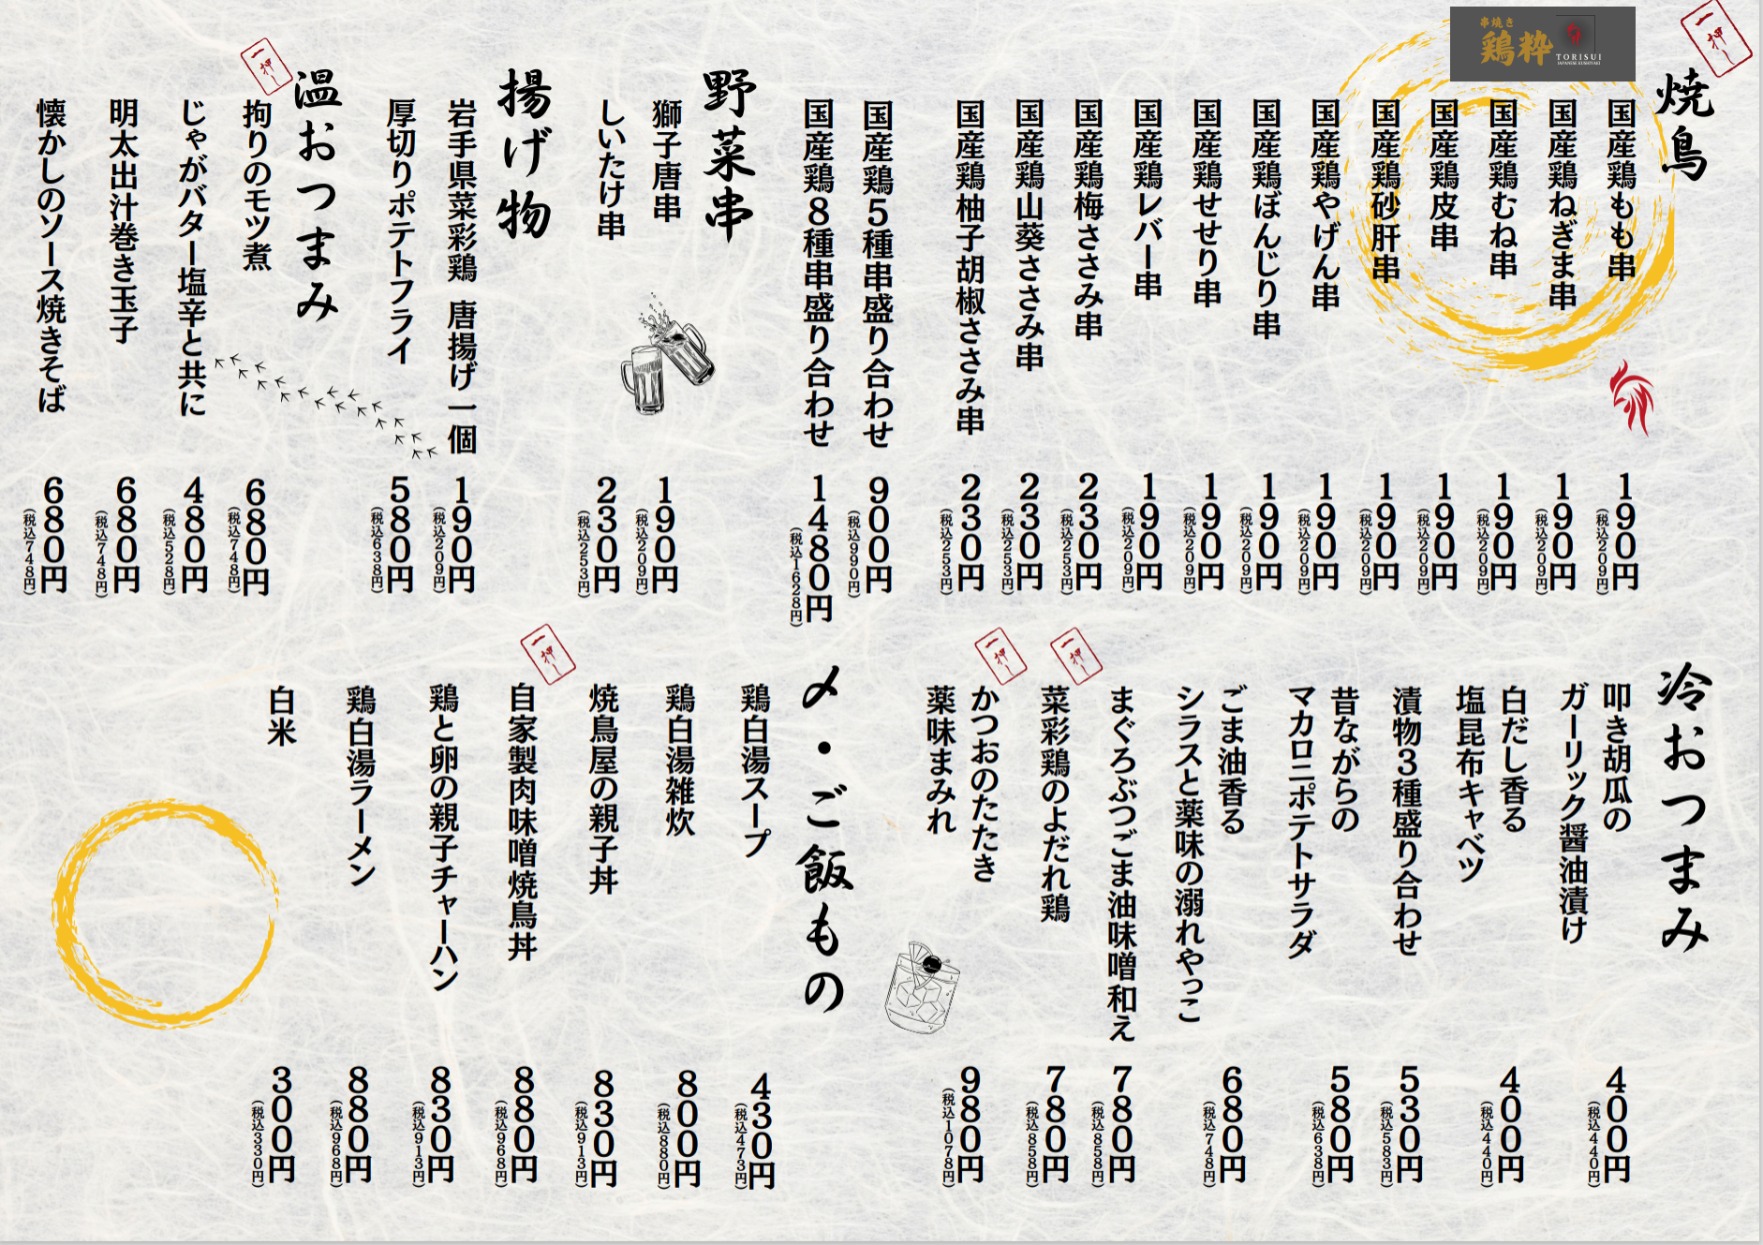 串焼き
鶏粋
TORISUI
一押し
焼鳥
国産鶏もも串
190円
(税込209円)
国産鶏ねぎま串
190円
(税込209円)
国産鶏むね串
190円
(税込209円)
国産鶏皮串
190円
(税込209円)
国産鶏砂肝串
190円
(税込209円)
国産鶏やげん串
190円
(税込209円)
国産鶏ぼんじり串
190円
(税込209円)
国産鶏せせり串
190円
(税込209円)
国産鶏レバー串
190円
(税込209円)
国産鶏梅ささみ串
230円
(税込253円)
国産鶏山葵ささみ串
230円
(税込253円)
国産鶏柚子胡椒ささみ串
230円
(税込253円)
国産鶏5種串盛り合わせ
900円
(税込990円)
国産鶏8種串盛り合わせ
1480円
(税込1628円)
野菜串
獅子唐串
190円
(税込209円)
しいたけ串
230円
(税込253円)
揚げ物
岩手県菜彩鶏 唐揚げ一個
190円
(税込209円)
厚切りポテトフライ
580円
(税込638円)
温おつまみ
一押し
拘りのモツ煮
680円
(税込748円)
じゃがバター塩辛と共に
480円
(税込528円)
明太出汁巻き玉子
680円
(税込748円)
懐かしのソース焼きそば
680円
(税込748円)
冷おつまみ
叩き胡瓜の
ガーリック醤油漬け
400円
(税込440円)
白だし香る
塩昆布キャベツ
400円
(税込440円)
漬物3種盛り合わせ
530円
(税込583円)
昔ながらの
マカロニポテトサラダ
580円
(税込638円)
ごま油香る
シラスと薬味の溺れやっこ
680円
(税込748円)
まぐろぶつごま油味噌和え
780円
(税込858円)
一押し
菜彩鶏のよだれ鶏
780円
(税込858円)
一押し
かつおのたたき
薬味まみれ
980円
(税込1078円)
〆・ご飯もの
鶏白湯スープ
430円
(税込473円)
鶏白湯雑炊
800円
(税込880円)
焼鳥屋の親子丼
830円
(税込913円)
一押し
自家製肉味噌焼鳥丼
880円
(税込968円)
鶏と卵の親子チャーハン
830円
(税込913円)
鶏白湯ラーメン
880円
(税込968円)
白米
300円
(税込330円)